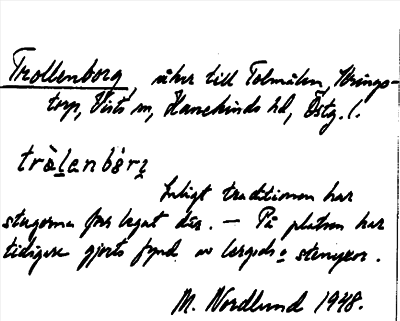 Trollenborg, åker till Tolmålen, Skrings-
torp, Vists sn, Hanekinds hd, Östg. l.
tròlenbòrj
Enligt traditionen har
stugorna förr legat där. — På platsen har
tidigare gjorts fynd av lergods o stenyxor.
M. Nordlund 1948.